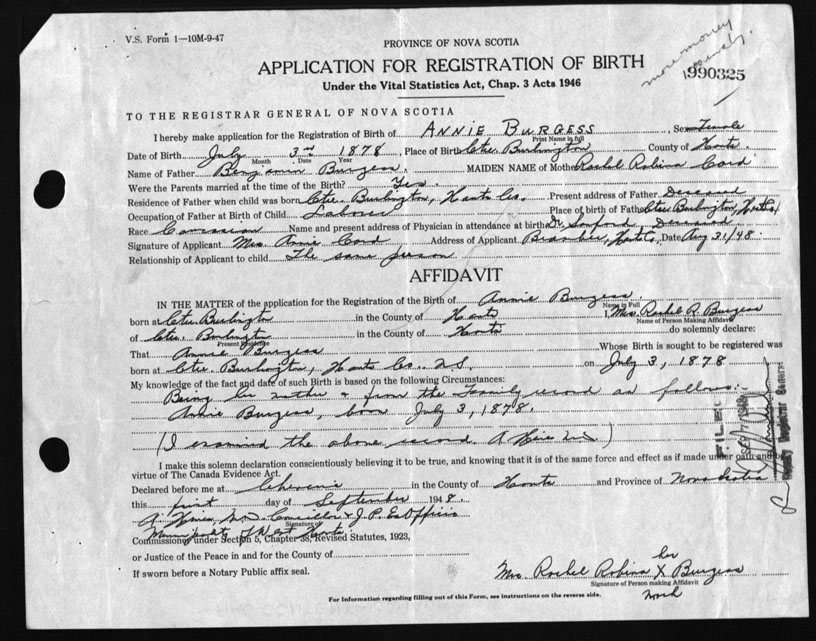 V.S. Form 1—10M-9-47
more money
PROVINCE OF NOVA SCOTIA
APPLICATION FOR REGISTRATION OF BIRTH
990325
Under the Vital Statistics Act, Chap. 3 Acts 1946
TO THE REGISTRAR GENERAL OF NOVA SCOTIA
I hereby make application for the Registration of Birth of ANNIE BURGESS, Sex Female
Print Name in full
Date of Birth July 3rd 1878, Place of Birth Ctre. Burlington County of Hants
Month Date Year
Name of Father Benjamin Burgess. MAIDEN NAME of Mother Rachel Robina Card
Were the Parents married at the time of the Birth? Yes.
Residence of Father when child was born Ctre. Burlington, Hants Co. Present address of Father Deceased
Occupation of Father at Birth of Child Laborer Place of birth of Father Ctre. Burlington, Hants Co,
Race Name and present address of Physician in attendance at birth Dr. Deceased
Signature of Applicant Mrs. Annie Card Address of Applicant Hants Co, Date Aug 31/48.
Relationship of Applicant to child The same person
AFFIDAVIT
IN THE MATTER of the application for the Registration of the Birth of Annie Burgess
Name in Full
born at Ctre. Burlington in the County of Hants I, Mrs. Rachel R. Burgess
Name of Person Making Affidavit
of Ctre. Burlington in the County of Hants do solemnly declare:
Present Residence
That Annie Burgess Whose Birth is sought to be registered was
born at Ctre. Burlington, Hants Co. N.S. on July 3, 1878
My knowledge of the fact and date of such Birth is based on the following Circumstances:
Being her mother & from the Family record as follows:-
Annie Burgess, born July 3, 1878.
(I examined the above record. )
FILED
Deputy Registrar General
I make this solemn declaration conscientiously believing it to be true, and knowing that it is of the same force and effect as if made under oath and by
virtue of The Canada Evidence Act.
Declared before me at Cheverie in the County of Hants and Province of Nova Scotia
this first day of September 1948.
Councillor & J.P. Ex Officio
Signature of
Municipality of West Hants
Commissioner under Section 5, Chapter 38, Revised Statutes, 1923,
or Justice of the Peace in and for the County of
her
If sworn before a Notary Public affix seal.
Mrs. Rachel Robina X Burgess
Signature of Person making Affidavit
mark
For Information regarding filling out of this Form, see instructions on the reverse side.